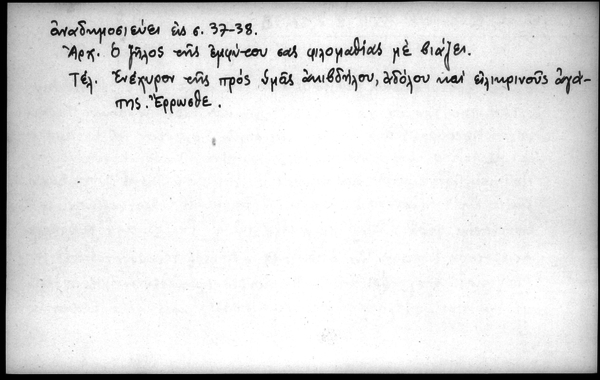 ἀναδημοσιεύει εἰς σ. 37-38.
Ἀρχ. Ὁ ζῆλος τῆς ἐμφύτου σας φιλομαθίας μὲ βιάζει.
Τέλ. Ἐνέχυρον τῆς πρός ὑμᾶς ἀκιβδήλου, ἀδόλου καί εἰλικρινοῦς ἀγά-
πης. Ἔρρωσθε.